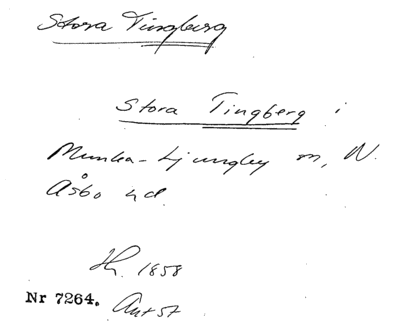 Stora Tingberg
Stora Tingberg i
Munka-Ljungby sn, N.
Åsbo hd.
Hr. 1858
Nr 7264. Ant 57